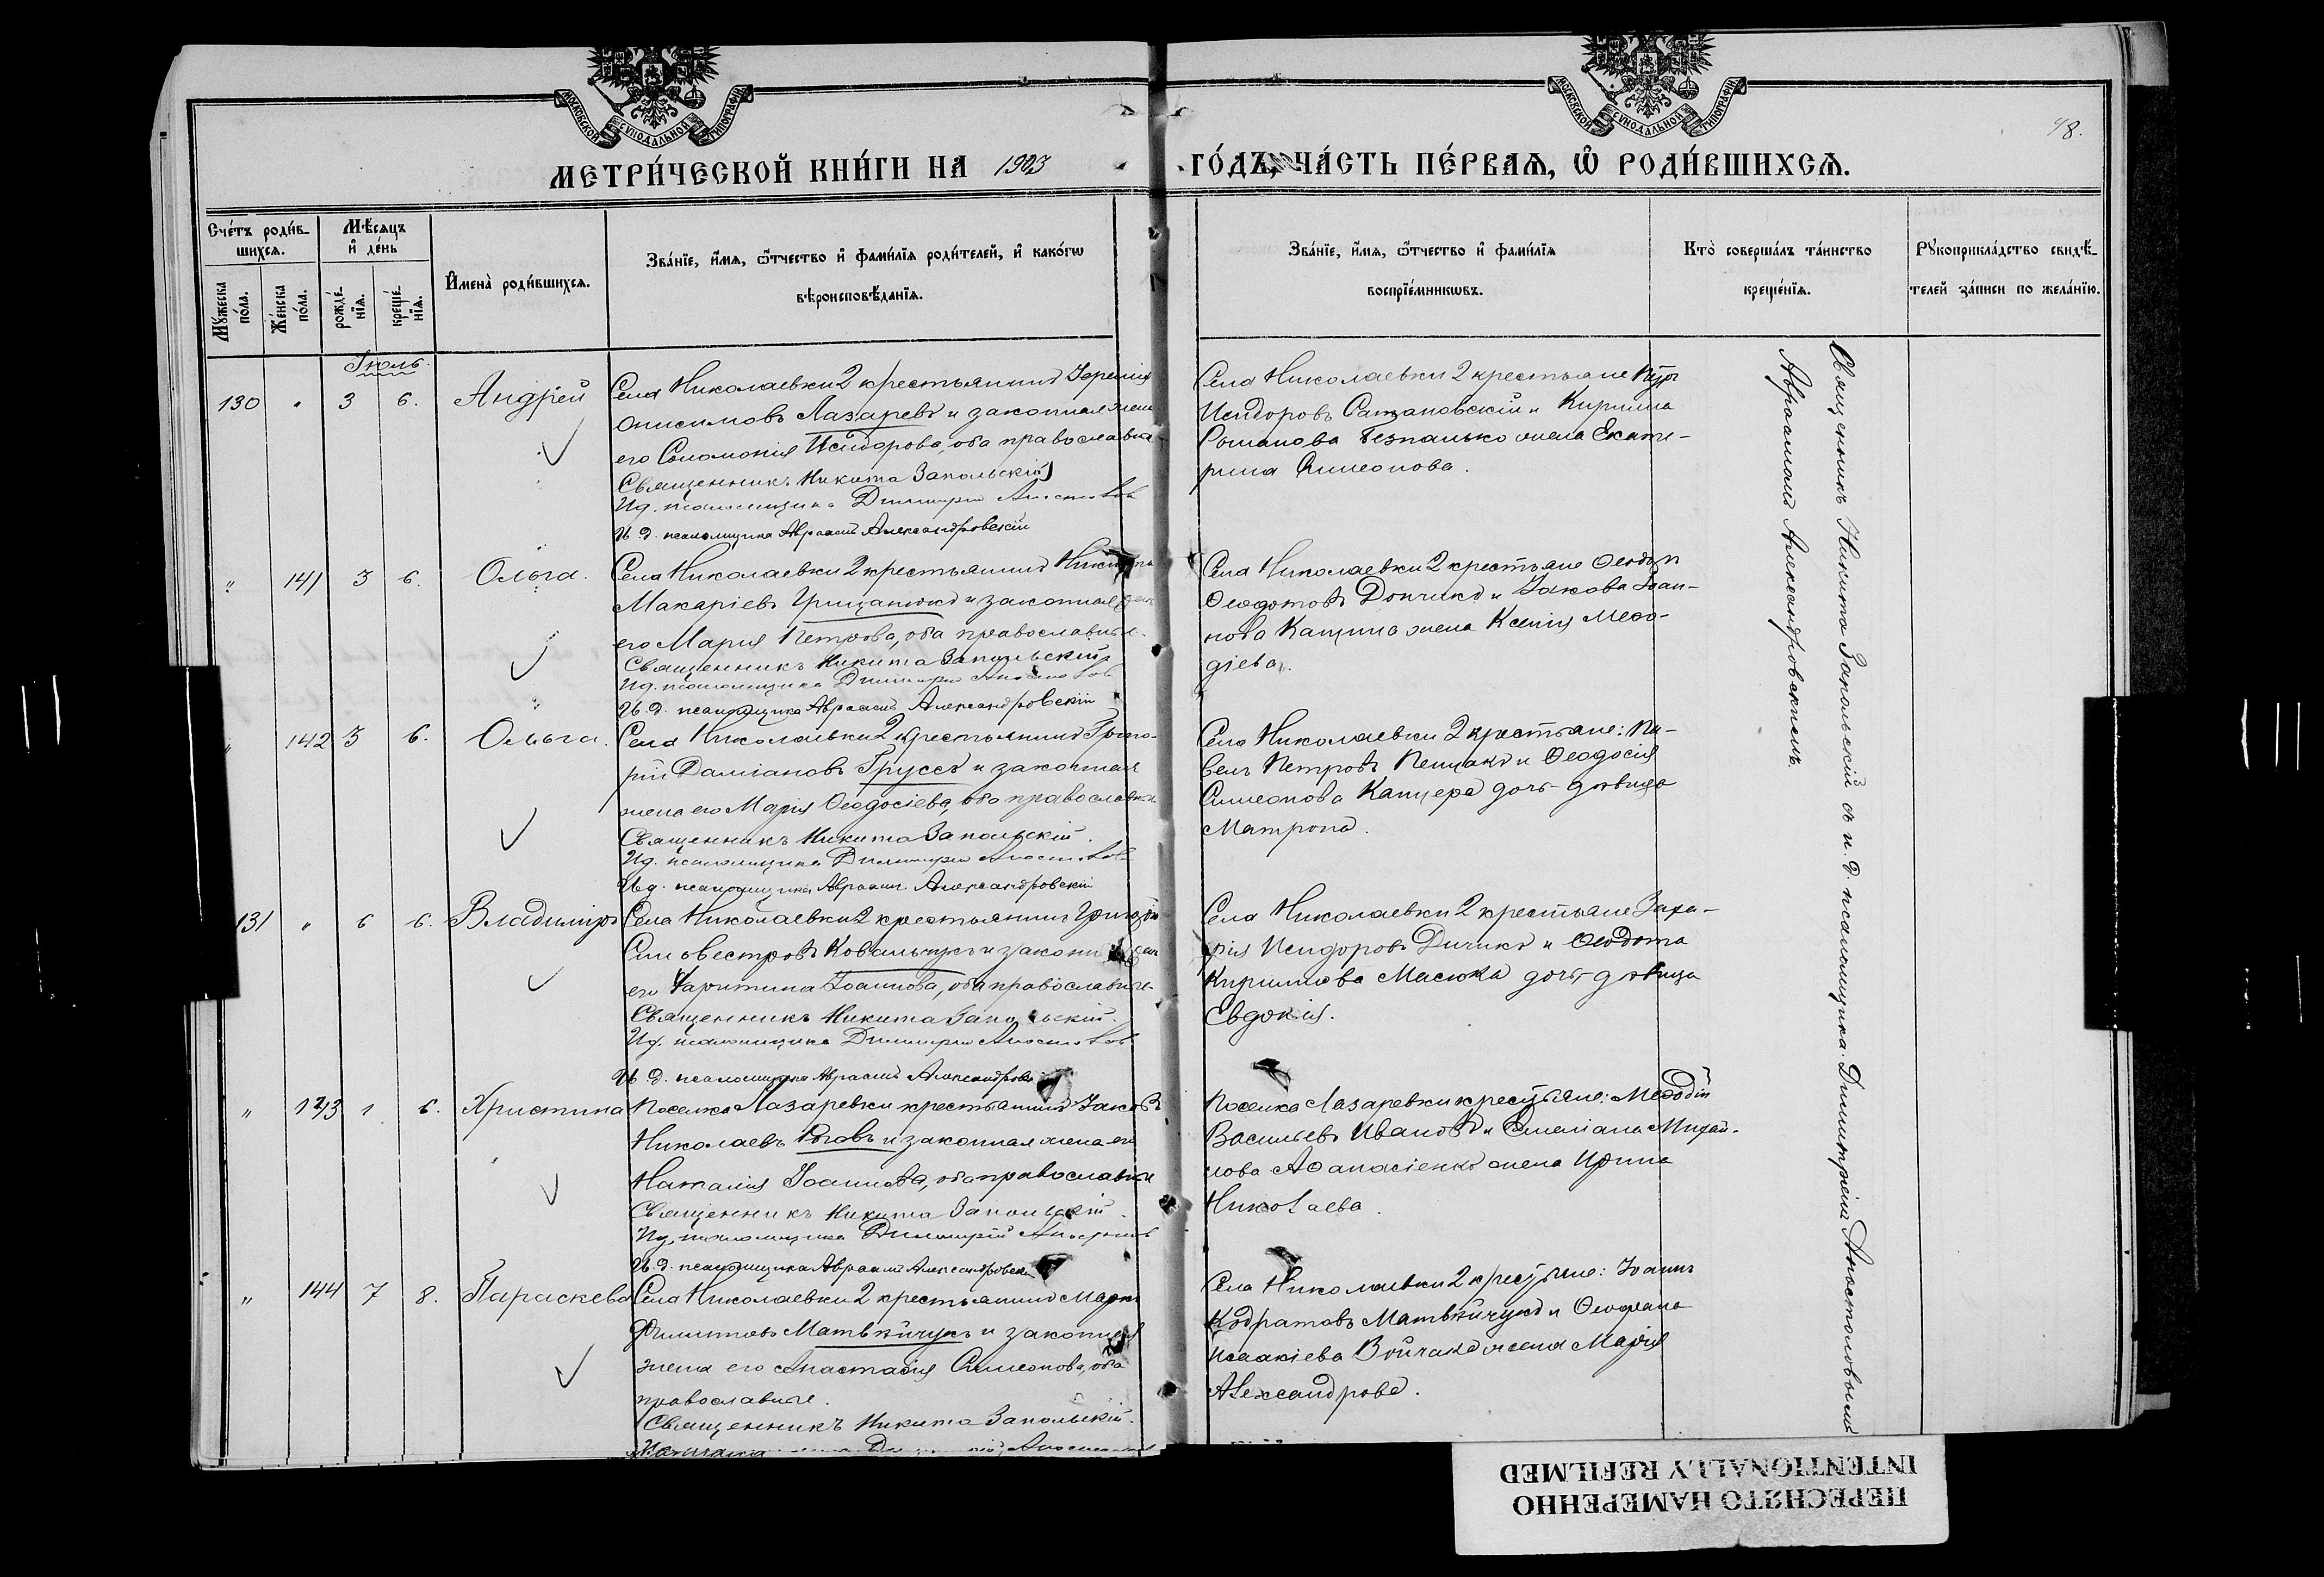 МОСКОВСКОЙ СѴНОДАЛЬНОЙ ТИПОГРАФІИ
МОСКОВСКОЙ СѴНОДАЛЬНОЙ ТИПОГРАФІИ
48.
МЕТРИ́ЧЕСКОЙ КНИ́ГИ НА 1903 ГО́ДЪ, ЧА́СТЬ ПЕ́РВАЯ, Ѡ РОДИ́ВШИХСЯ.
Счетъ роди́в-
шихся.
Му́жеска по́ла.
Же́нска по́ла.
Мѣ́сяцъ и де́нь
рожде́-нія.
креще́-нія.
Имена̀ роди́вшихся.
Зва́нїе, и́мя, ѻ́тчество и фами́лїя роди́телей, и како́гѡ
вѣроисповѣ́данїя.
Зва́нїе, и́мя, ѻ́тчество и фами́лїя
воспрїе́мникѡвъ.
Кто̀ соверша́лъ та́инство
креще́нїя.
Рꙋкоприкла́дство свидѣ́-
телей за́писи по жела́нїю.
Іюль.
130 " 3 6. Андрей
Села Николаевки 2 крестьянинъ Іеремія
Онисимовъ Лазаревъ и законная жена
его Соломонія Исидорова, оба православные
Священникъ Никита Запольскій
Ид. псаломщика Димитрій Апостоловъ
И. д. псаломщика Авраамъ Александровскій
Села Николаевки 2 крестьяне Петръ
Исидоровъ Сатановскій и Кирилла
Романова Безпалько жена Екате-
рина Симеонова.
" 141 3 6. Ольга.
Села Николаевки 2 крестьянинъ Никита
Макаріевъ Грицанюкъ и законная жена
его Марія Петрова, оба православные.
Священникъ Никита Запольскій
Ид. псаломщика Димитрій Апостоловъ
И. д. псаломщика Авраамъ Александровскій
Села Николаевки 2 крестьяне Ѳеодотъ
Ѳеодотовъ Дончикъ и Іакова Іоан-
нова жена Ксенія Меѳо-
діева.
" 142 3 6. Ольга.
Села Николаевки 2 крестьянинъ Григо-
рій Даміановъ Груссъ и законная
жена его Марія Ѳеодосіева, оба православные
Священникъ Никита Запольскій.
Ид. псаломщика Димитрій Апостоловъ
И. д. псаломщика Авраамъ Александровскій
Села Николаевки 2 крестьяне: Па-
велъ Петровъ и Ѳеодосія
Симеонова Канцера дочь-дѣвица
Матрона.
131 " 6 6. Владиміръ
Села Николаевки 2 крестьянинъ Григорій
Сильвестровъ Ковальчукъ и законная жена
его Харитина Іоаннова, оба православные
Священникъ Никита Запольскій.
Ид. псаломщика Димитрій Апостоловъ
И. д. псаломщика Авраамъ Александровскій
Села Николаевки 2 крестьяне Заха-
рія Исидоровъ Дичикъ и Ѳеодота
Кириллова Масюка дочь-дѣвица
Евдокія.
" 143 1 6. Христина
Поселка Лазаревки крестьянинъ Іаковъ
Николаевъ Роговъ и законная жена его
Наталія Іоаннова, оба православные
Священникъ Никита Запольскій.
Ид. псаломщика Димитрій Апостоловъ
И. д. псаломщика Авраамъ Александровскій
Поселка Лазаревки крестьяне: Меѳодій
Васильевъ Ивановъ и Емеліана Михаи-
лова Аѳанасіенко жена Ирина
Николаева.
" 144 7 8. Параскева
Села Николаевки 2 крестьянинъ Маркъ
Филипповъ Матвѣйчукъ и законная
жена его Анастасія Симеонова, оба
православные.
Священникъ Никита Запольскій.
Села Николаевки 2 крестьяне: Іоаннъ
Кодратовъ Матвѣйчукъ и Ѳеофана
Исаакіева Войчака жена Марія
Александрова.
Священникъ Никита Запольскій съ и. д. псаломщика Димитріемъ Апостоловымъ
Авраамомъ Александровскимъ.
ПЕРЕСНЯТО НАМЕРЕННО
INTENTIONALLY REFILMED